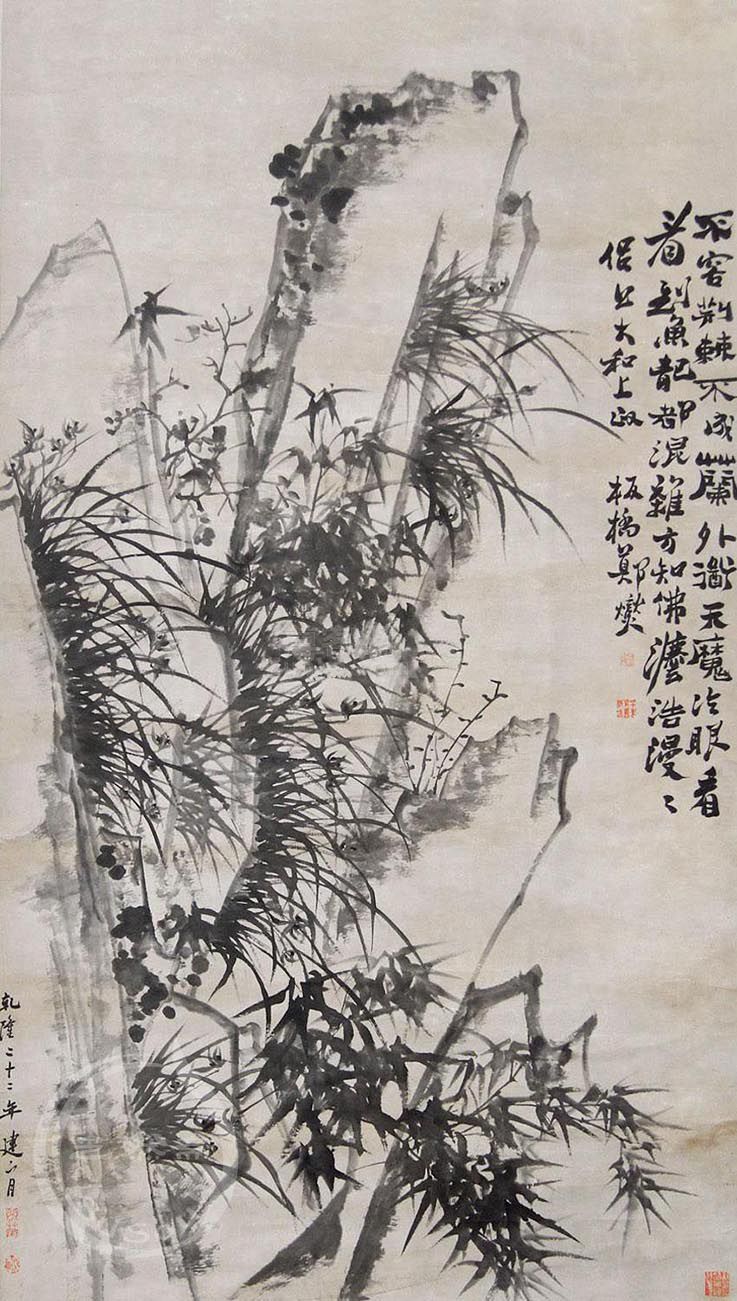 不容荆棘不成蘭外道天魔冷眼看
看到魚龍都混雜方知佛法浩漫〻
侶公大和上政 板橋鄭燮
乾隆二十二年建子月